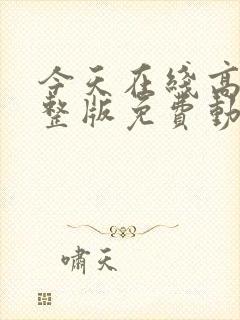 今天在綫高
整版免費動
嘯天